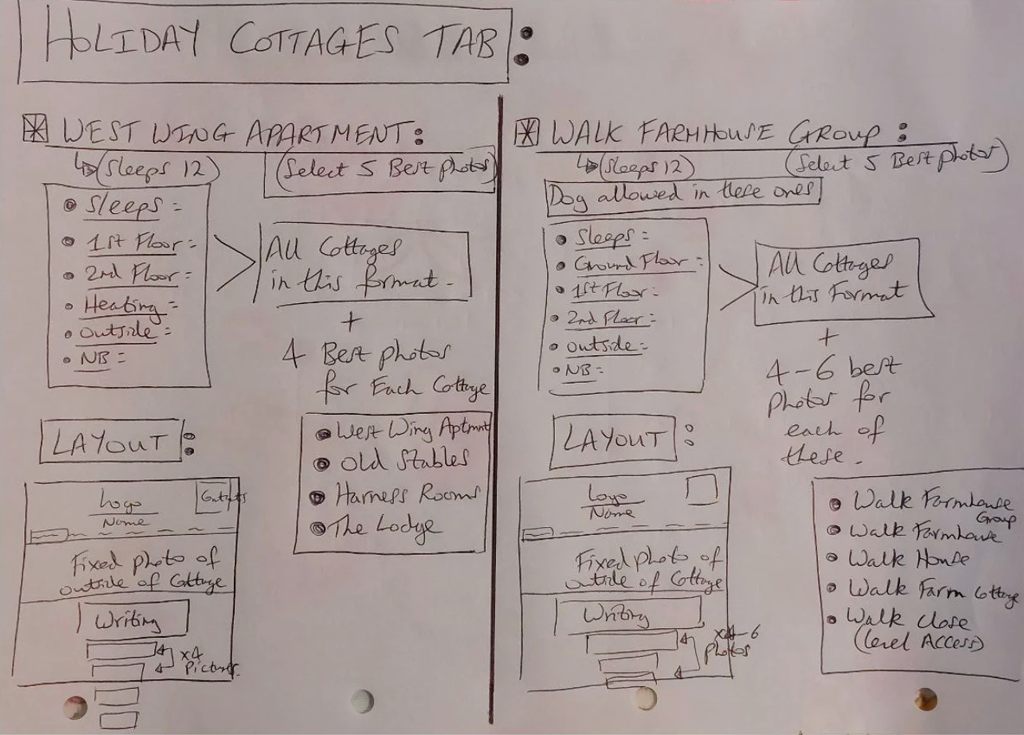 HOLIDAY COTTAGES TAB:
WEST WING APARTMENT:
(Sleeps 12)
(Select 5 Best photos)
Sleeps =
1st Floor =
2nd Floor =
Heating =
outside =
NB =
All Cottages
in this format.
+
4 Best photos
for Each Cottage
West Wing Aptmnt
Old Stables
Harness Rooms
The Lodge
LAYOUT:
Logo
Name
Fixed photo of
outside of Cottage
Writing
x4
Pictures.
WALK FARMHOUSE GROUP:
(Sleeps 12)
(Select 5 Best photos)
Dog allowed in these ones
Sleeps =
Ground Floor =
1st Floor =
2nd Floor =
outside =
NB =
All Cottages
in this Format
+
4-6 best
photos for
each of
these.
LAYOUT:
Logo
Name
Fixed photo of
outside of Cottage
Writing
x4-6
photos
Walk Farmhouse
Group
Walk Farmhouse
Walk House
Walk Farm Cottage
Walk Close
(Level Access)